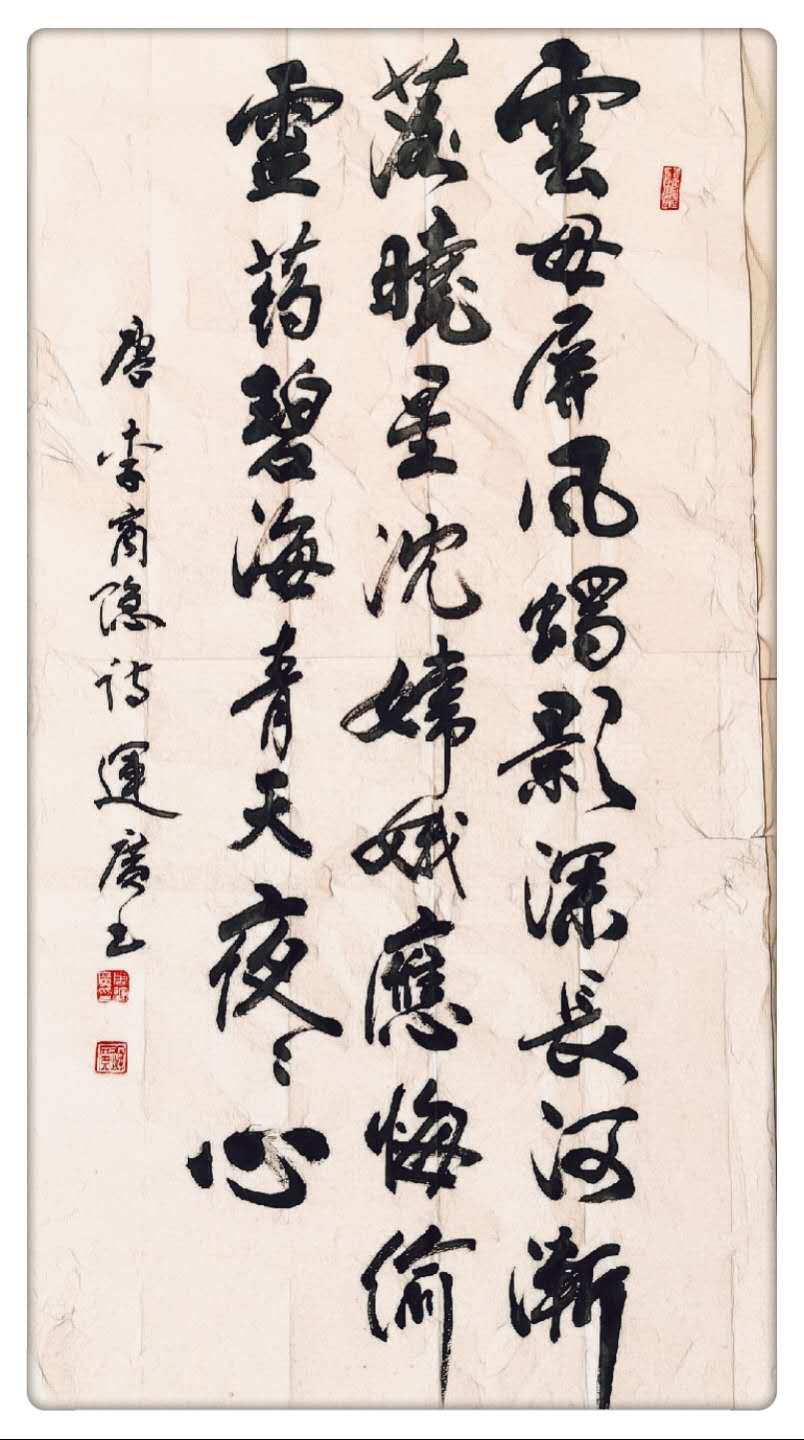 雲母屏風燭影深長河漸
落曉星沈嫦娥應悔偷
靈药碧海青天夜々心
唐李商隐诗運廣书